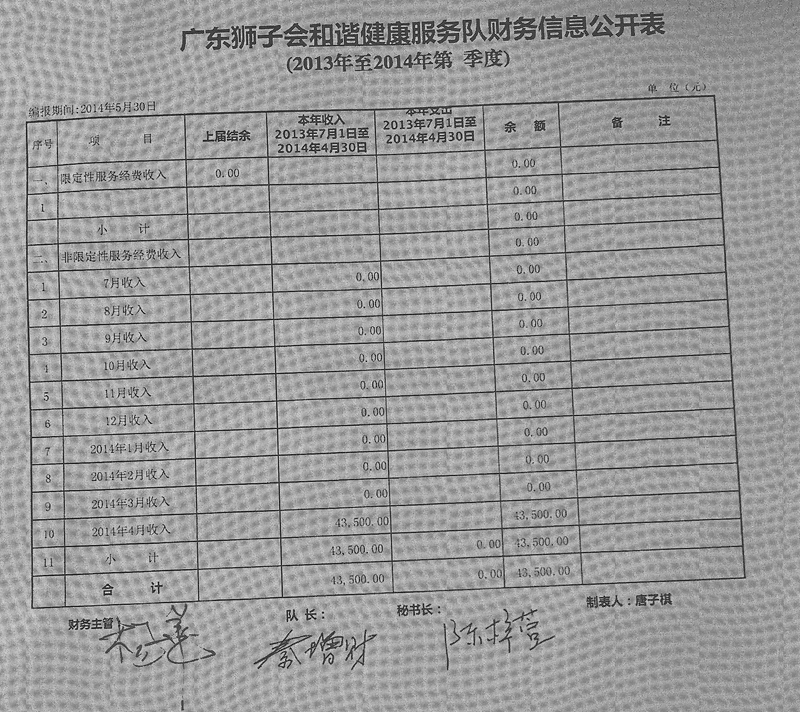 广东狮子会和谐健康服务队财务信息公开表
(2013年至2014年第 季度)
编报期间:2014年5月30日 单 位(元)
序号 项 目 上届结余 本年收入 2013年7月1日至2014年4月30日 本年支出 2013年7月1日至2014年4月30日 余 额 备 注
一、 限定性服务经费收入 0.00 0.00
1 0.00
小 计 0.00
二、 非限定性服务经费收入 0.00
1 7月收入 0.00 0.00
2 8月收入 0.00 0.00
3 9月收入 0.00 0.00
4 10月收入 0.00 0.00
5 11月收入 0.00 0.00
6 12月收入 0.00 0.00
7 2014年1月收入 0.00 0.00
8 2014年2月收入 0.00 0.00
9 2014年3月收入 0.00 0.00
10 2014年4月收入 43,500.00 43,500.00
11 小 计 43,500.00 0.00 43,500.00
合 计 43,500.00 0.00 43,500.00
财务主管 队 长： 秦增财 秘书长： 陈梓萱 制表人：唐子棋